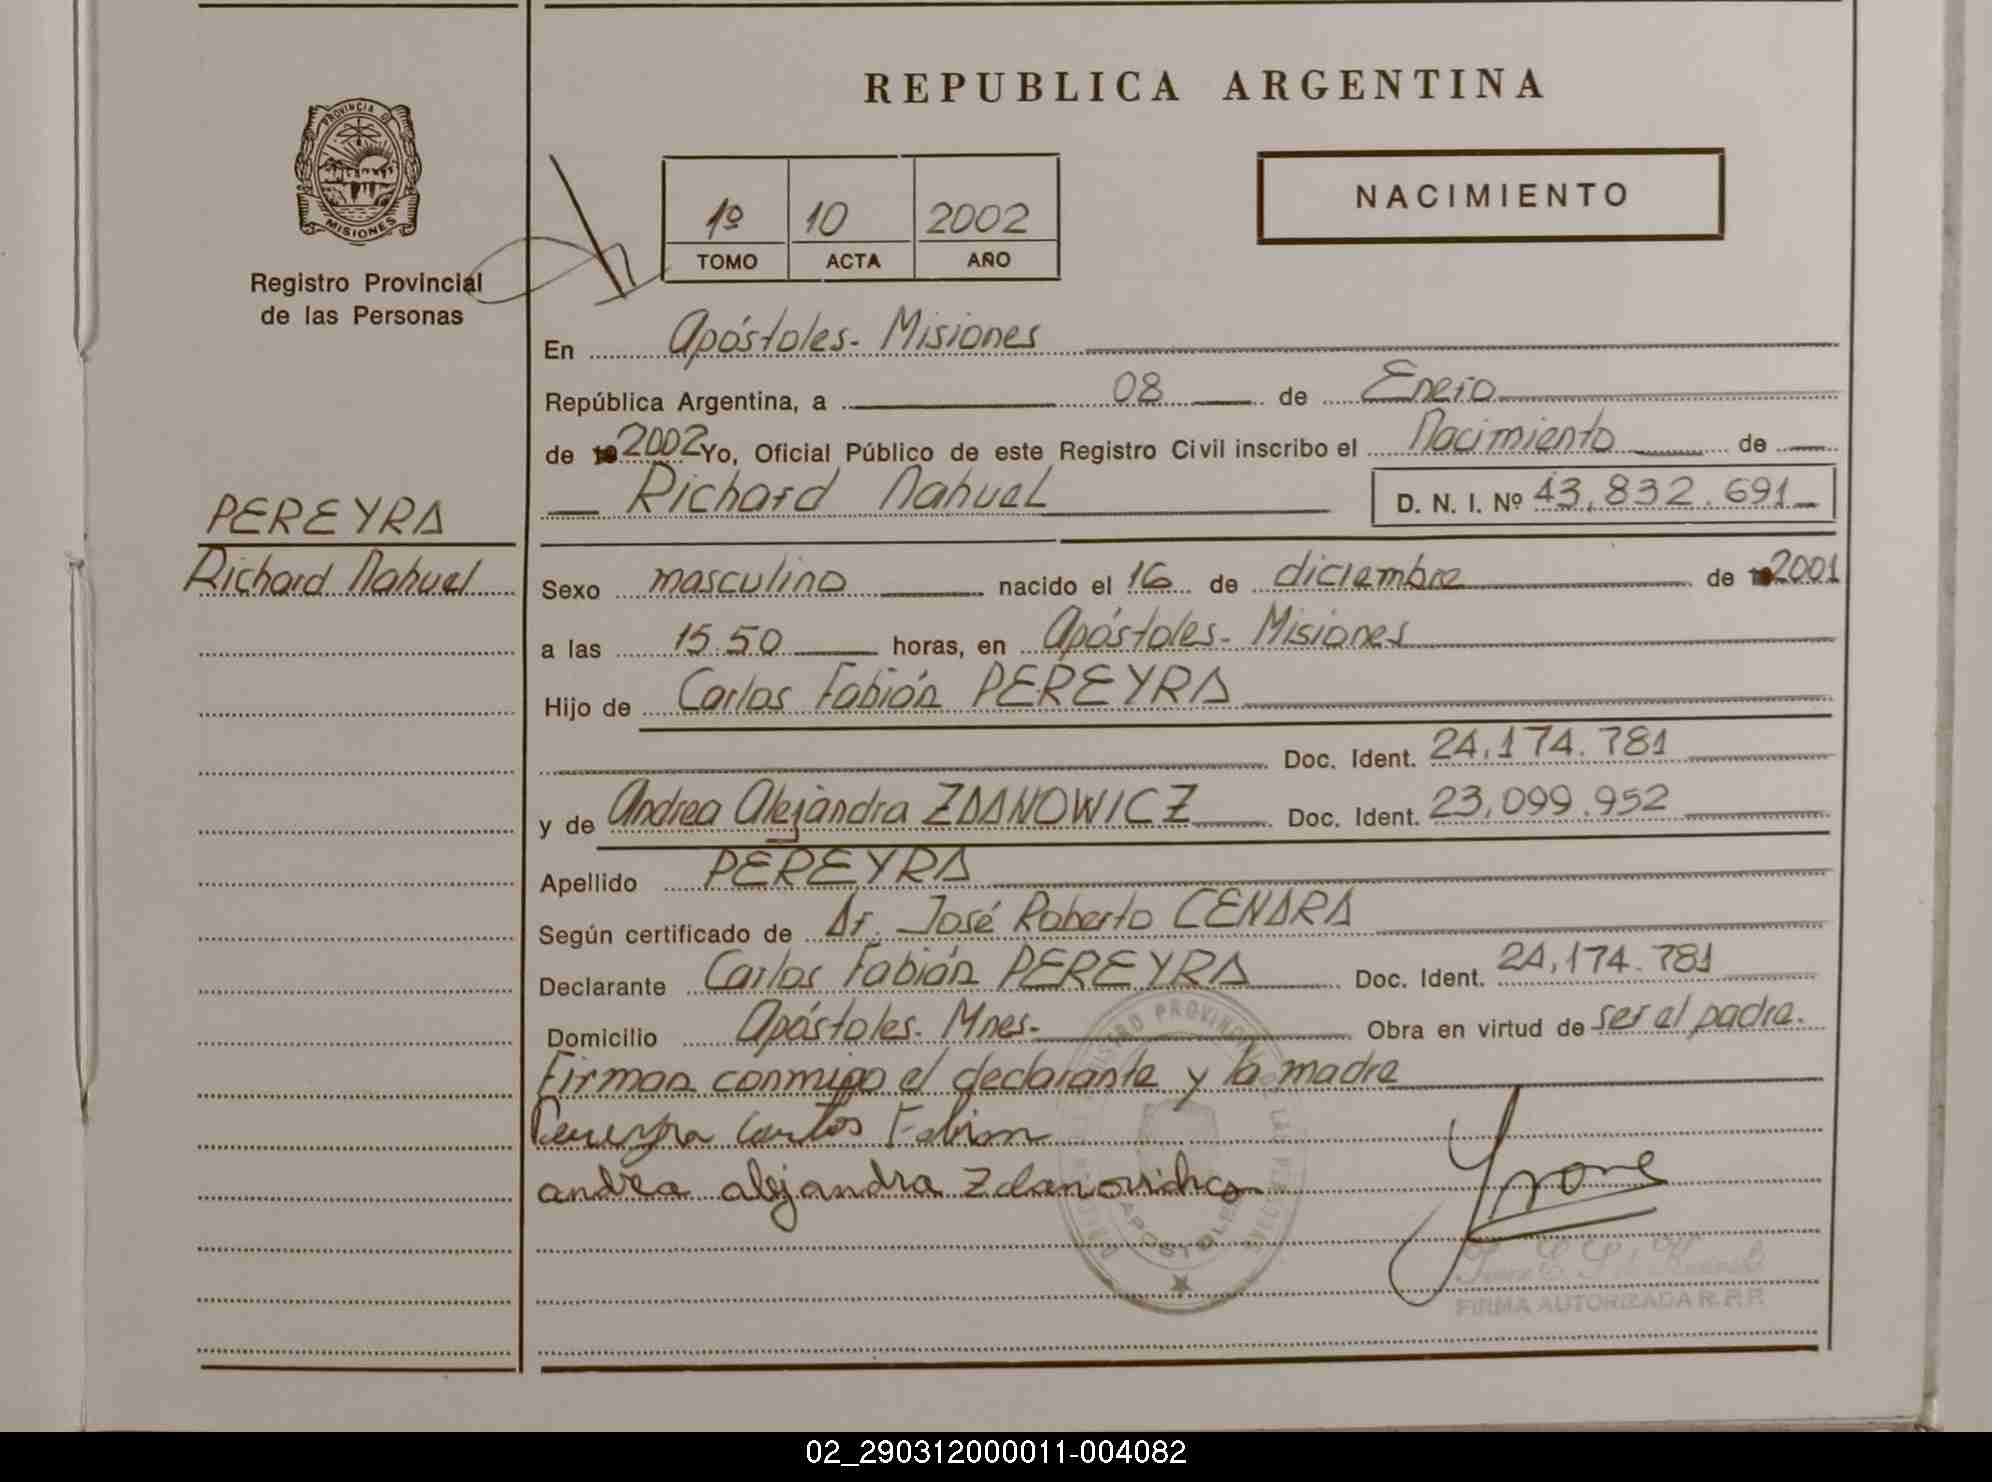 REPUBLICA ARGENTINA
PROVINCIA DE
MISIONES
Registro Provincial
de las Personas
1º 10 2002
TOMO ACTA AÑO
NACIMIENTO
En Apóstoles - Misiones
República Argentina, a 08 de Enero
de 2002 Yo, Oficial Público de este Registro Civil inscribo el Nacimiento de
Richard Nahuel D. N. I. Nº 43,832.691
PEREYRA
Richard Nahuel
Sexo masculino nacido el 16 de diciembre de 2001
a las 15:50 horas, en Apóstoles - Misiones
Hijo de Carlos Fabián PEREYRA
Doc. Ident. 24,174.781
y de Andrea Alejandra ZDANOWICZ Doc. Ident. 23,099.952
Apellido PEREYRA
Según certificado de Dr. José Roberto CENDRA
Declarante Carlos Fabián PEREYRA Doc. Ident. 24,174.781
Domicilio Apóstoles - Mnes. Obra en virtud de ser el padre.
Firman conmigo el declarante y la madre
Pereyra Carlos Fabian
andrea alejandra
APOSTOLES
FIRMA AUTORIZADA R.P.P.
02_290312000011-004082